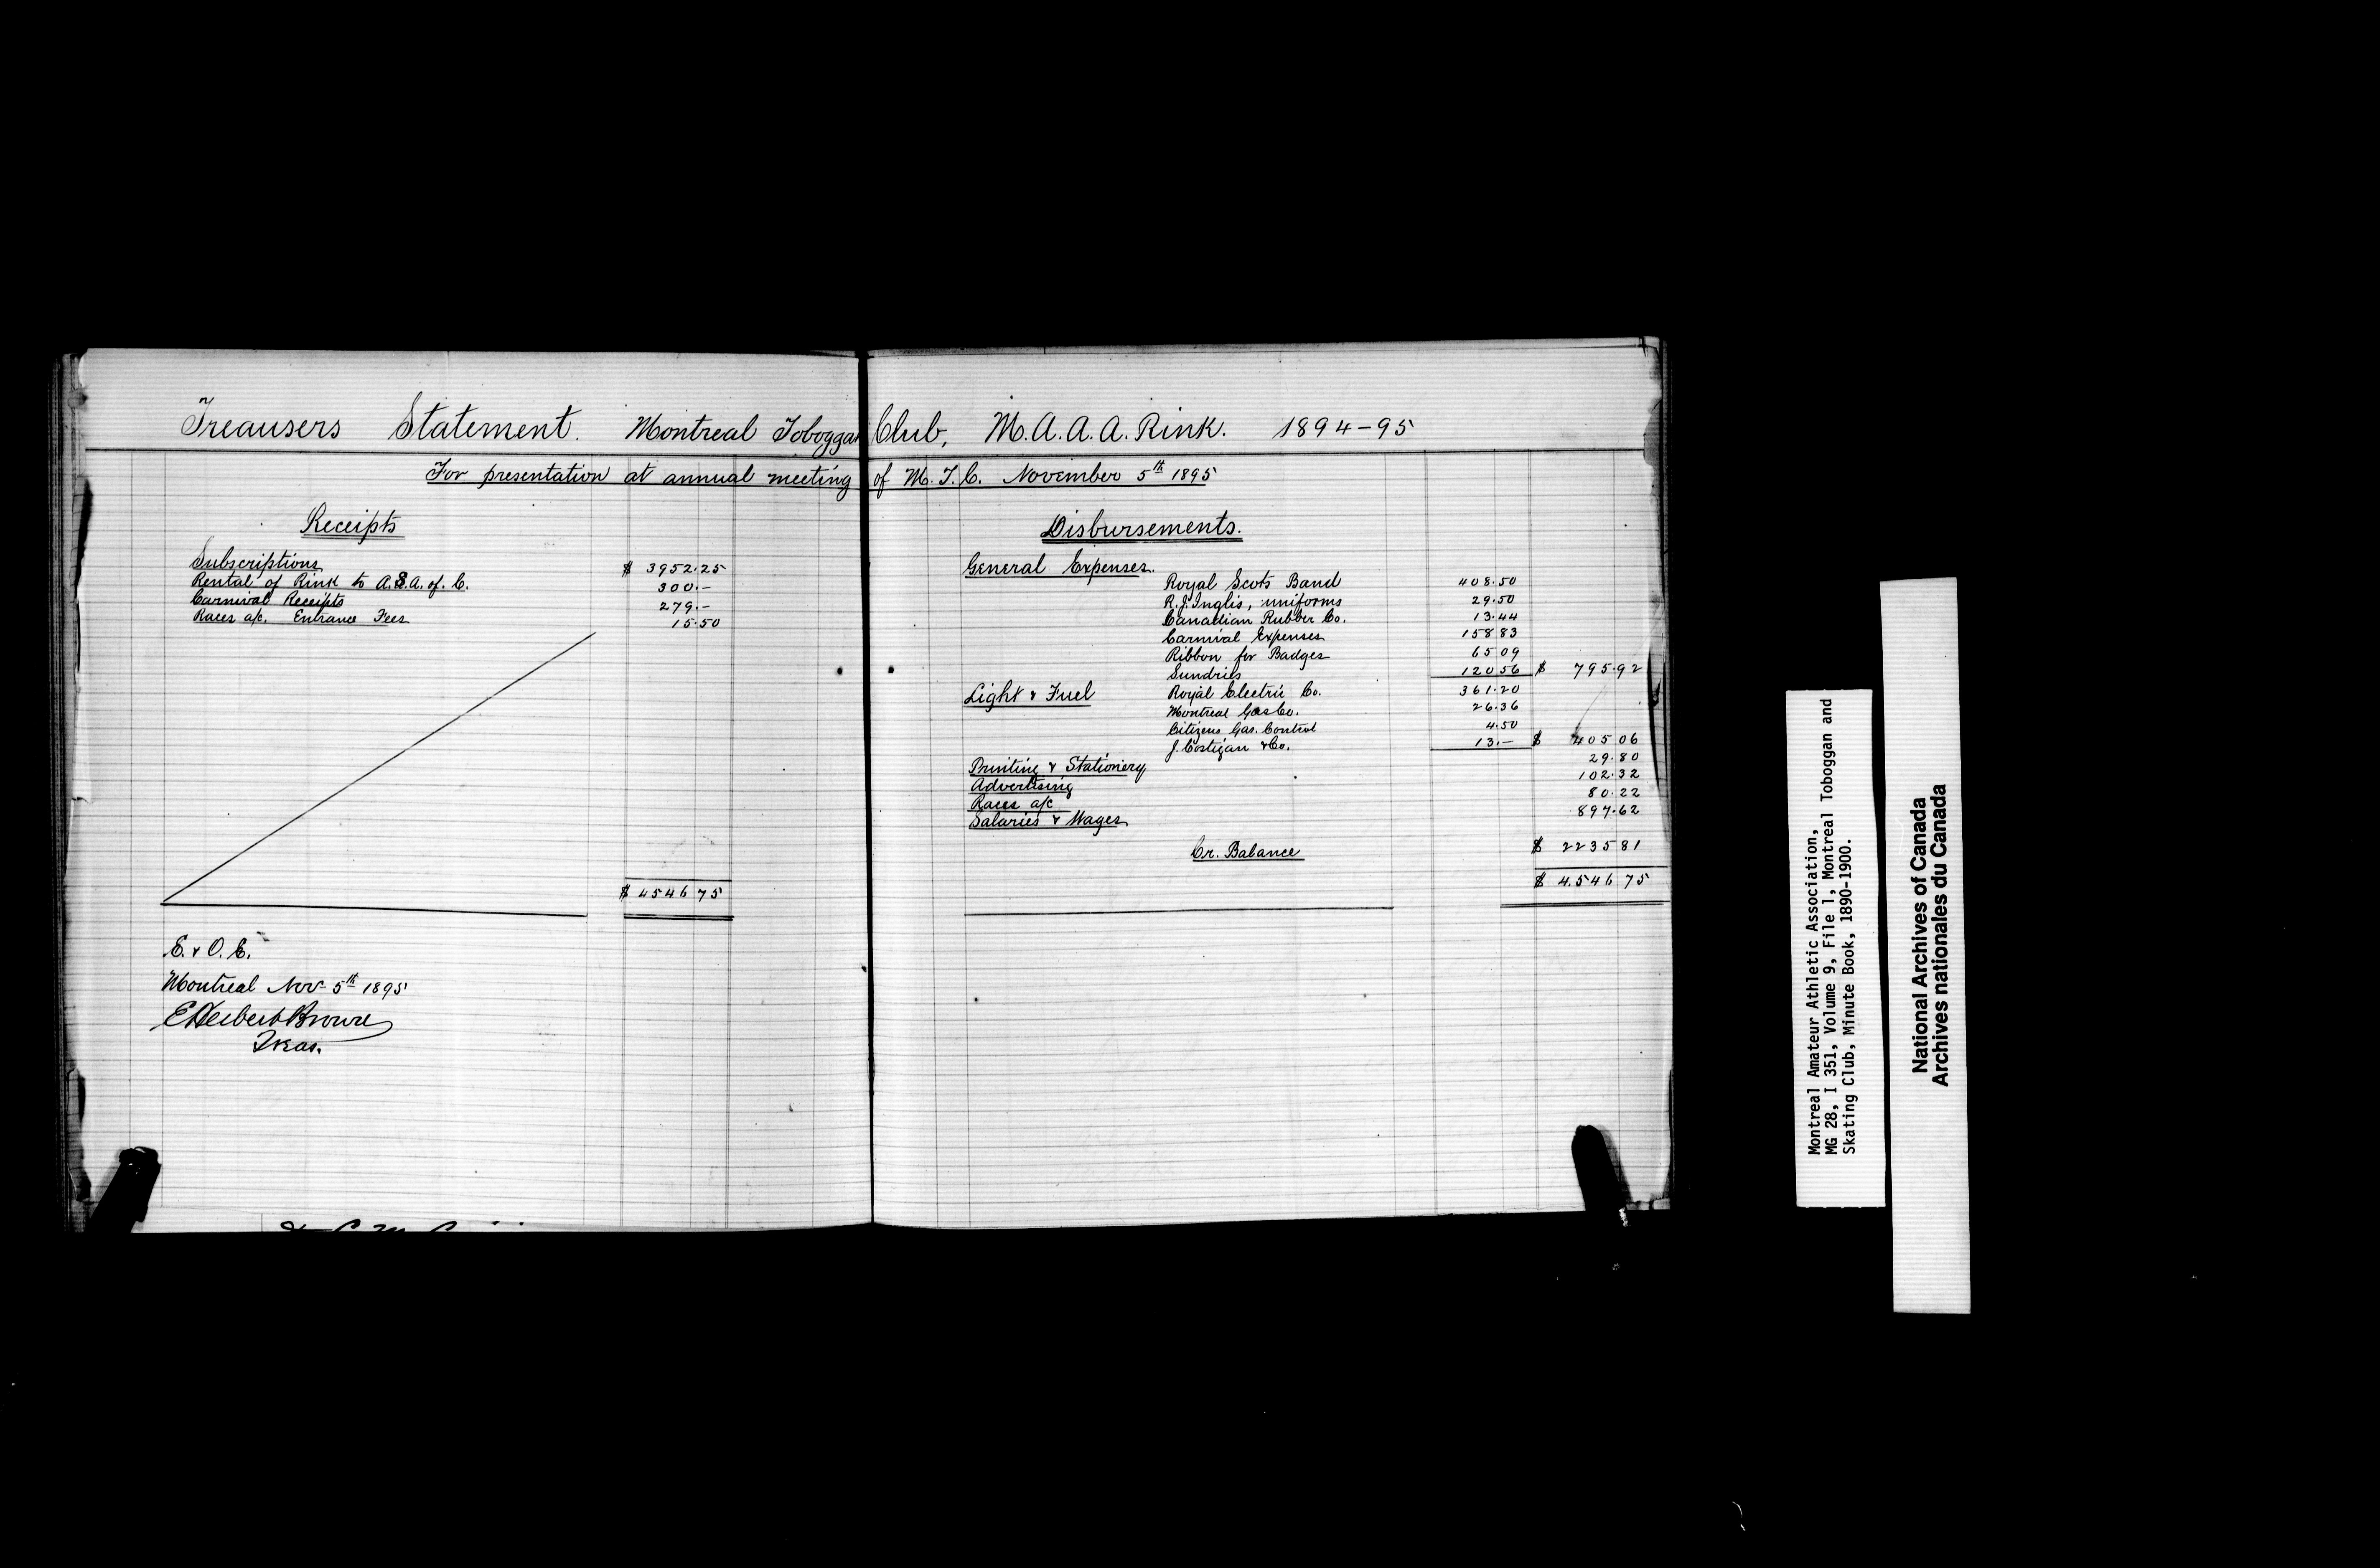 Treausers Statement. Montreal Toboggan Club, M.A.A.A. Rink. 1894-95
For presentation at annual meeting of M.T.C. November 5th 1895
Receipts
Subscriptions $ 3952.25
Rental of Rink to A.S.A. of C. 300.-
Carnival Receipts 279.-
Races a/c. Entrance Fees 15.50
$ 4546 75
E. & O. E.
Montreal Nov 5th 1895
E Herbert Brown
Treas.
Disbursements.
General Expenses.
Royal Scots Band 408.50
R.J. Inglis, uniforms 29.50
Canadian Rubber Co. 13.44
Carnival Expenses 158 83
Ribbon for Badges 65 09
Sundries 120 56 $ 795.92
Light & Fuel Royal Electric Co. 361.20
Montreal Gas Co. 26.36
Citizens Gas. Control 4.50
J. Costigan & Co. 13.- $ 405 06
Printing & Stationery 29.80
Advertising 102.32
Races a/c 80.22
Salaries & Wages 897.62
Cr. Balance $ 2235 81
$ 4.546 75
Montreal Amateur Athletic Association,
MG 28, I 351, Volume 9, File 1, Montreal Tobogan and
Skating Club, Minute Book, 1890-1900.
National Archives of Canada
Archives nationales du Canada